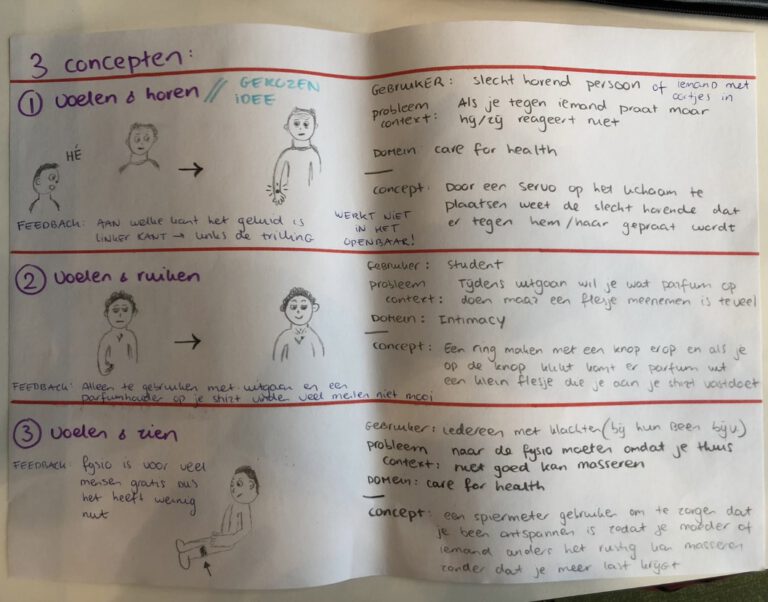 3 concepten:
① Voelen & horen // GEKOZEN
IDEE
HÉ
FEEDBACK: AAN welke kant het geluid is
LINKER KANT → links de trilling
WERKT NIET
IN HET
OPENBAAR!
GEBRUIKER: slecht horend persoon of iemand met
oortjes in
probleem Als je tegen iemand praat maar
context: hij/zij reageert niet
DOMEIN: care for health
concept: Door een servo op het lichaam te
plaatsen weet de slecht horende dat
er tegen hem/haar gepraat wordt
② Voelen & ruiken
FEEDBACK: Alleen te gebruiken met uitgaan en een
parfumhouder op je shirt vinden veel meiden niet mooi
Gebruiker: Student
probleem Tijdens uitgaan wil je wat parfum op
context: doen maar een flesje meenemen is te veel
DOMEIN: Intimacy
concept: Een ring maken met een knop erop en als je
op de knop klikt komt er parfum uit
een klein flesje die je aan je shirt vastdoet
③ Voelen & zien
FEEDBACK: fysio is voor veel
mensen gratis dus
het heeft weinig
nut
Gebruiker: iedereen met klachten (bij hun been bijv.)
probleem naar de fysio moeten omdat je thuis
context: niet goed kan masseren
DOMEIN: care for health
concept: een spiermeter gebruiken om te zorgen dat
je been ontspannen is zodat je moeder of
iemand anders het rustig kan masseren
zonder dat je meer last krijgt